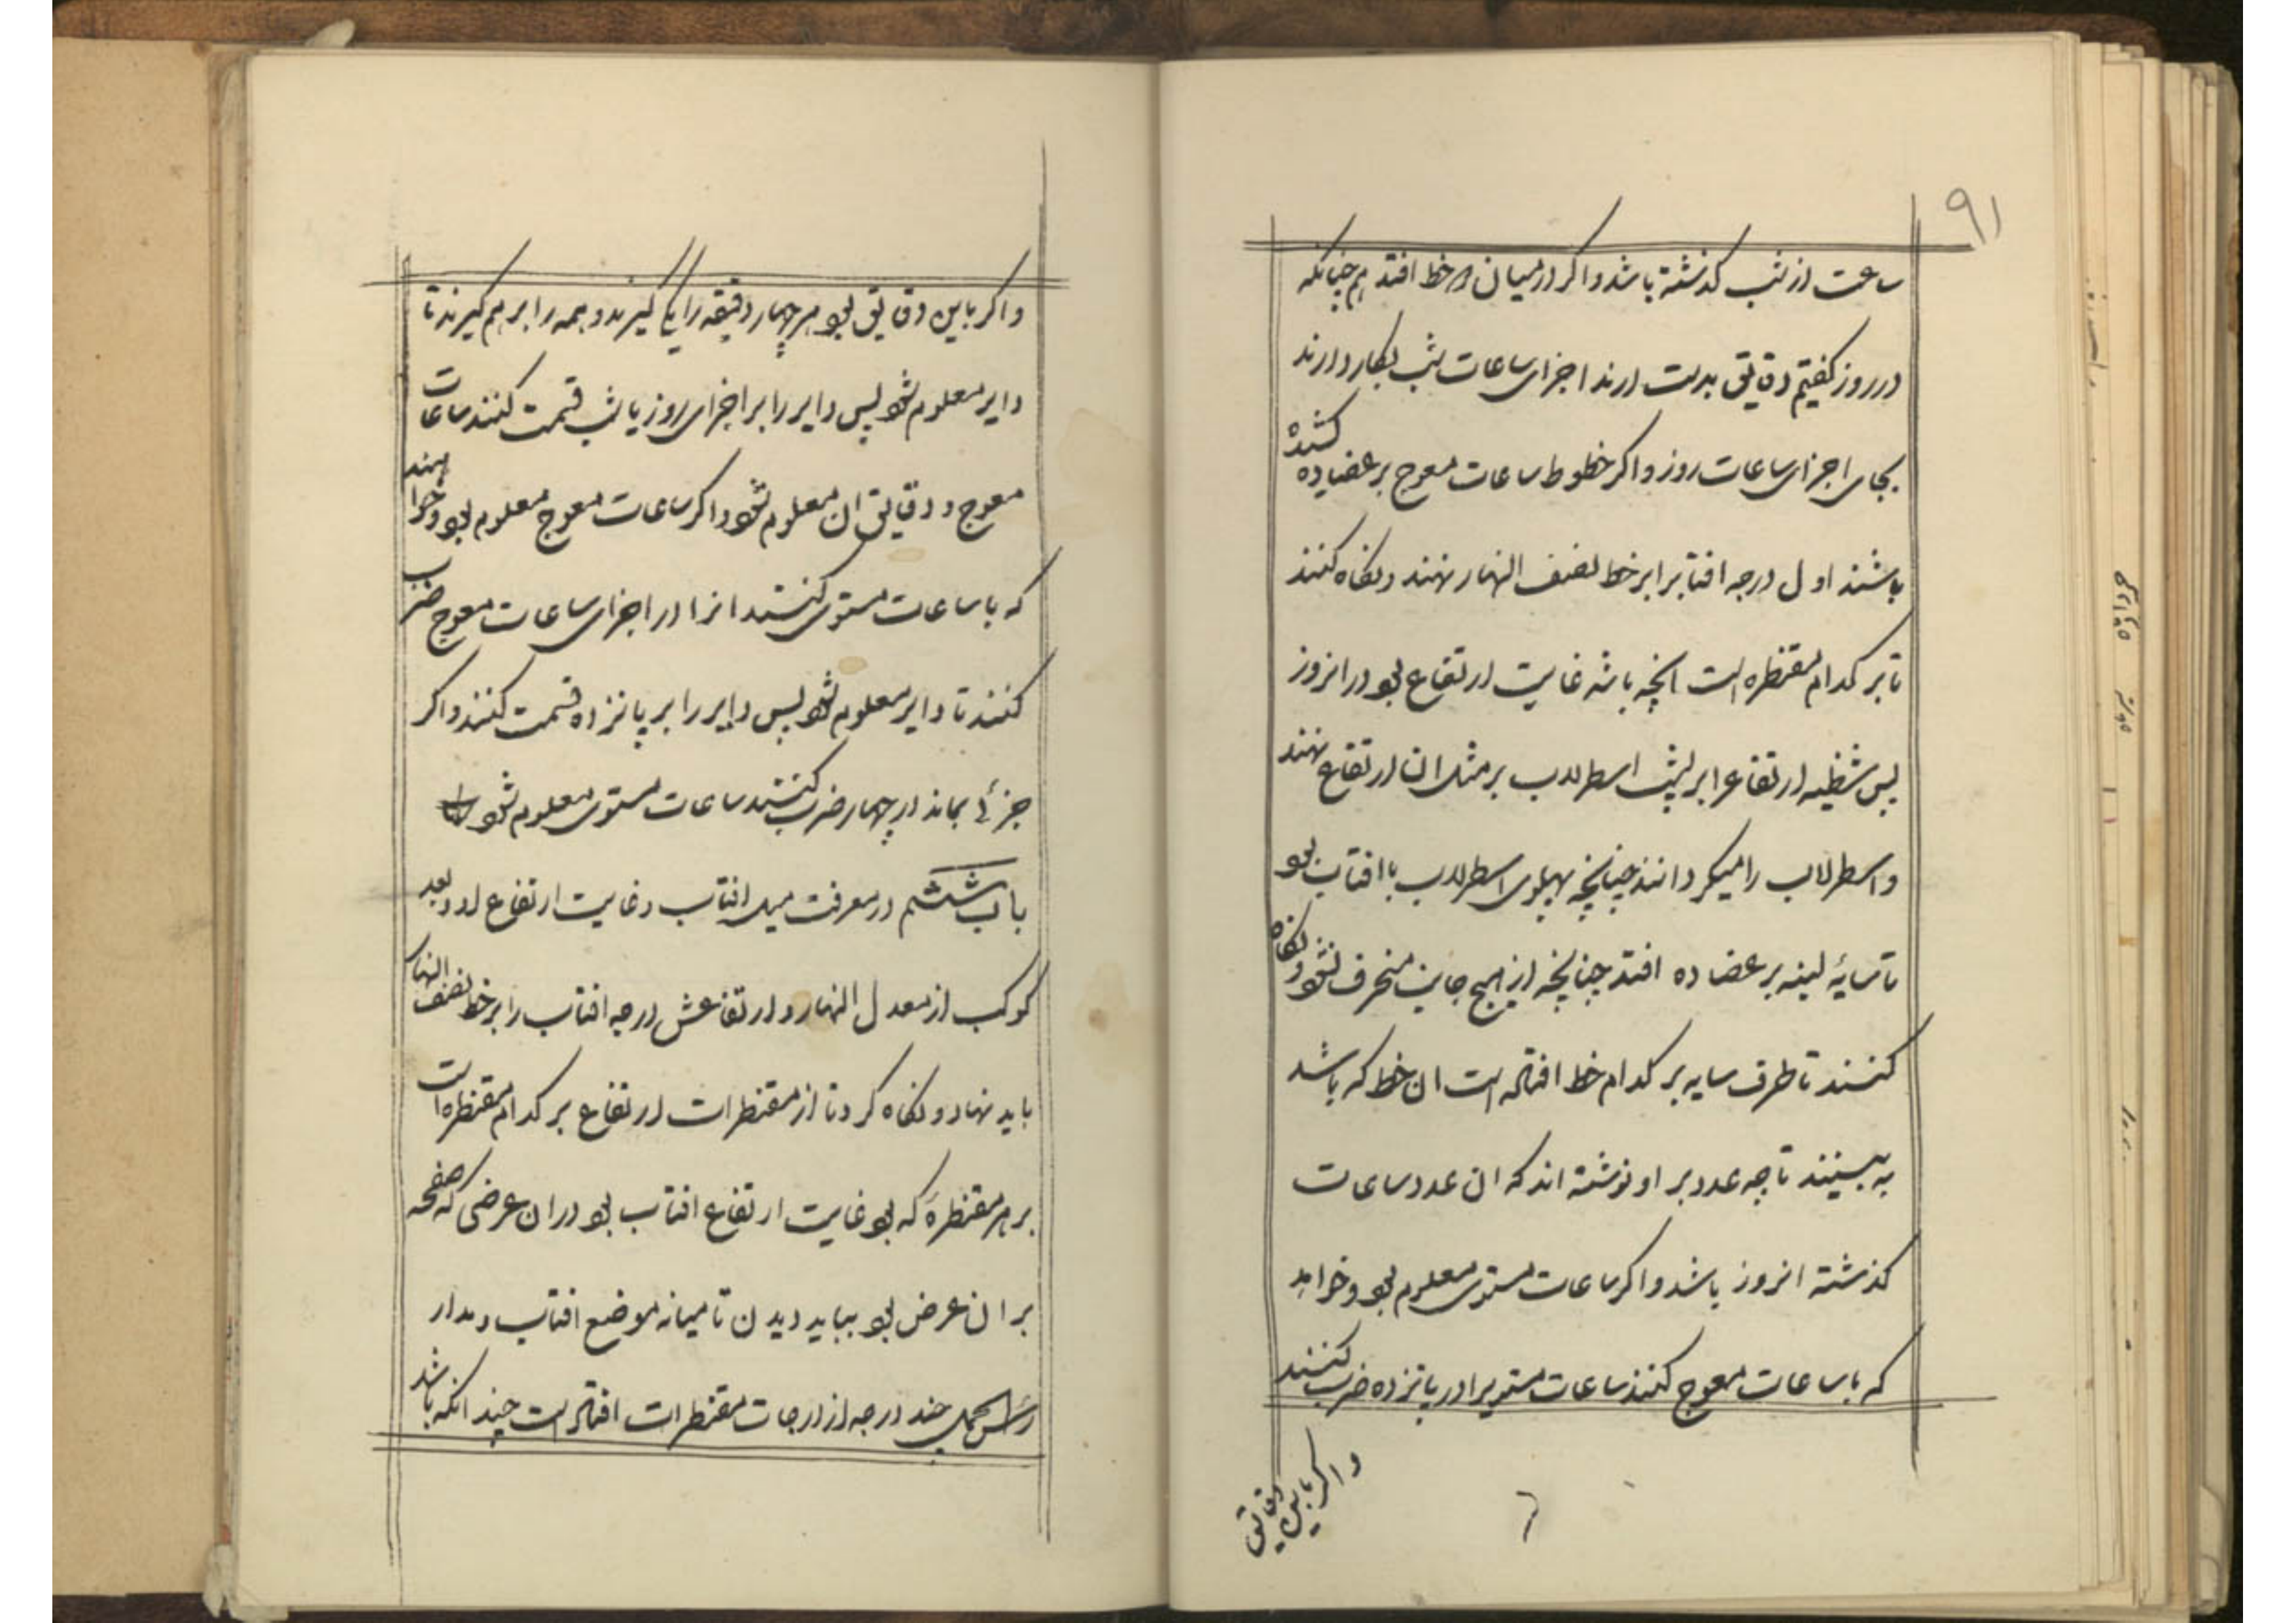 ۹۱
ساعت از شب کذشته باشد واکر در میان دو خط افتد هم چنانکه
در روز کفتیم دقایق بدست ارند اجزای ساعات شب بکار دارند
بجای اجزای ساعات روز واکر خطوط ساعات معوج بر عضاده کشیده
باشند اول درجه افتاب را بر خط نصف النهار نهند ونکاه کنند
تا بر کدام مقنطره است انچه باشد غایت ارتفاع بود در انروز
پس شظیه ارتفاع را بر پشت اسطرلاب بر مثل ان ارتفاع نهند
واسطرلاب را میکردانند چنانچه پهلوی اسطرلاب با افتاب بود
تا سایهٔ لبنه بر عضاده افتد چنانچه از هیچ جانب منحرف نشود ونکاه
کنند تا طرف سایه بر کدام خط افتاده است ان خط که باشد
به ببینند تا چه عدد بر او نوشته اند که ان عدد ساعات
کذشته انروز باشد واکر ساعات مستوی معلوم بود وخواهد
که با ساعات معوج کنند ساعات مستویرا در پانزده ضرب کنند
واکر باین دقایق
واکر باین دقایق بود هر چهار دقیقه را یکی کیرند وهمه را بر هم کیرند تا
دایر معلوم شود پس دایر را بر اجزای روز یا شب قسمت کنند ساعات
معوج ودقایق ان معلوم شود واکر ساعات معوج معلوم بود وخواهند
که با ساعات مستوی کنند انرا در اجزای ساعات معوج ضرب
کنند تا دایر معلوم شود پس دایر را بر پانزده قسمت کنند واکر
جزئی بماند در چهار ضرب کنند ساعات مستوی معلوم شود
باب ششم در معرفت میل افتاب وغایت ارتفاع او وبعد
کوکب از معدل النهار وارتفاعش درجه افتاب را بر خط نصف النهار
باید نهاد ونکاه کرد تا از مقنطرات ارتفاع بر کدام مقنطره است
بر هر مقنطرهٔ که بود غایت ارتفاع افتاب بود در ان عرضی که صفحه
بر ان عرض بود بباید دیدن تا میانه موضع افتاب ومدار
راس الحمل چند درجه از درجات مقنطرات افتاده است چند انکه باشد